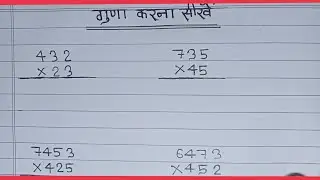 गुणा करना सीखें
432 735
×23 ×45
7453 6473
×425 ×452